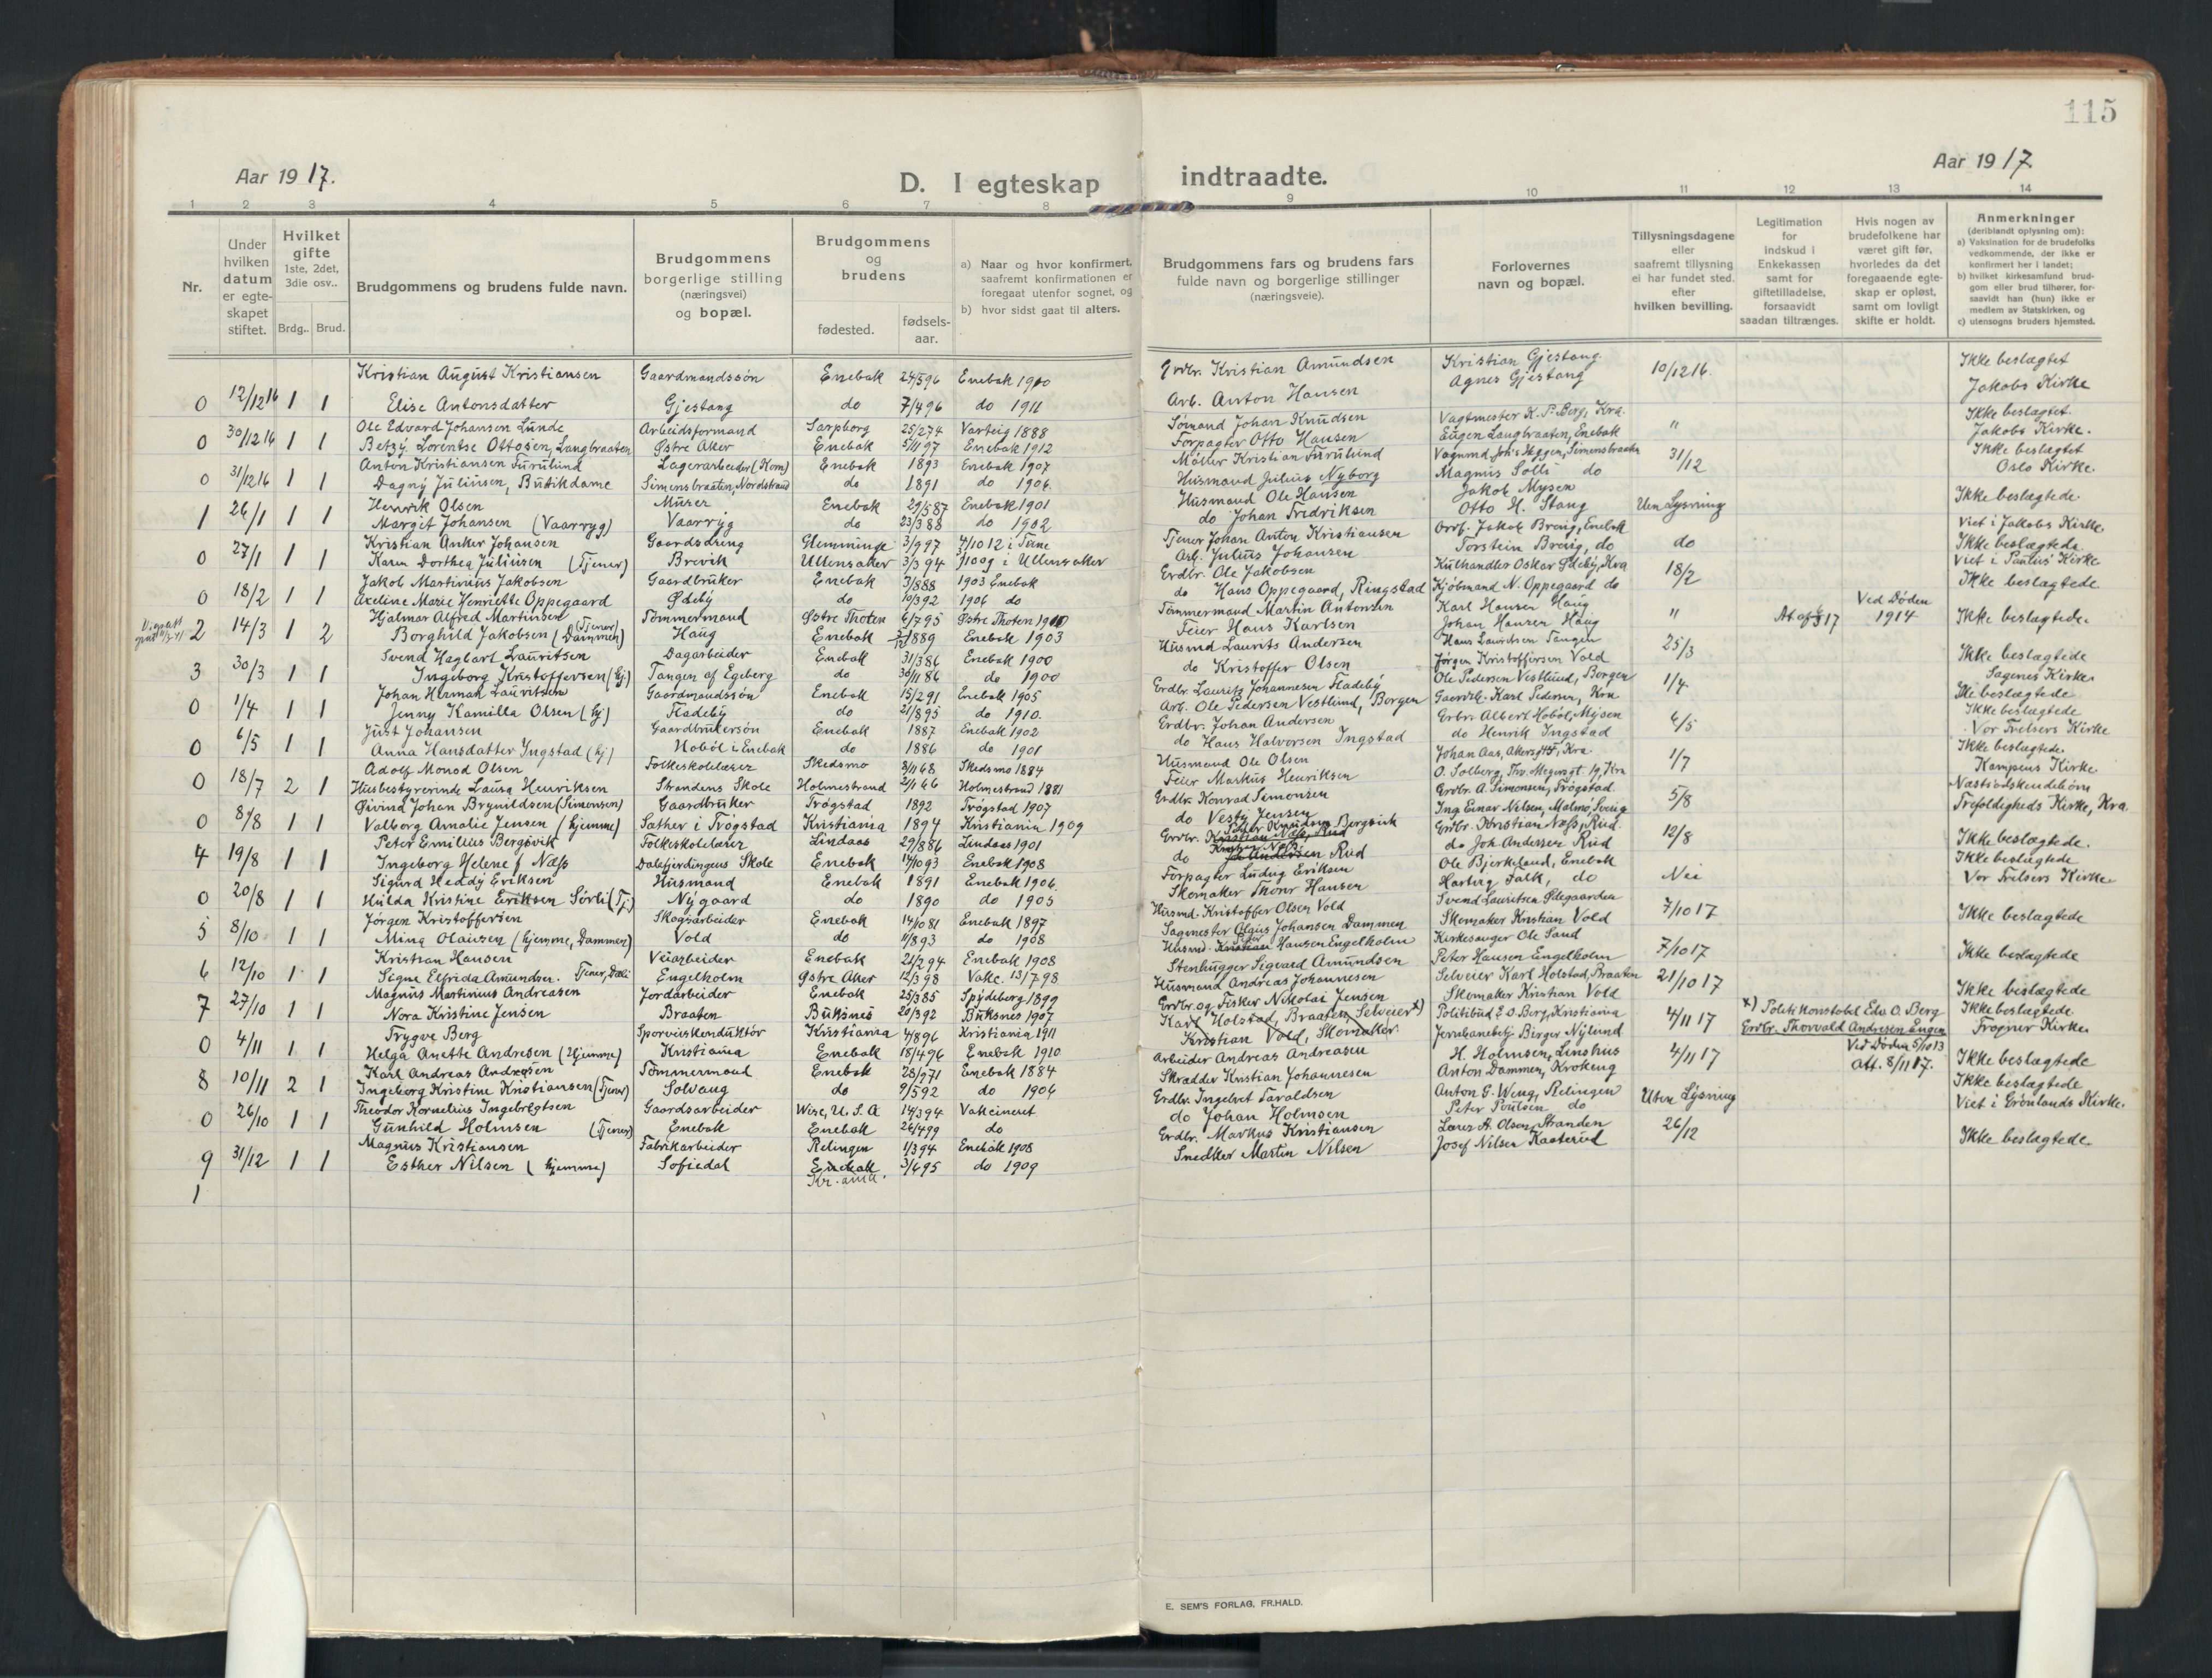 115
Aar 1917.
D. I egteskap indtraadte.
Aar 1917
1 2 3 4 5 6 7 8 9 10 11 12 13 14
Nr.
Under hvilken datum er egteskapet stiftet.
Hvilket gifte 1ste, 2det, 3die osv..
Brdg.. Brud.
Brudgommens og brudens fulde navn.
Brudgommens borgerlige stilling (næringsvei) og bopæl.
Brudgommens og brudens
fødested.
fødsels-aar.
a) Naar og hvor konfirmert, saafremt konfirmationen er foregaat utenfor sognet, og
b) hvor sidst gaat til alters.
Brudgommens fars og brudens fars fulde navn og borgerlige stillinger (næringsveie).
Forlovernes navn og bopæl.
Tillysningsdagene eller saafremt tillysning ei har fundet sted. efter hvilken bevilling.
Legitimation for indskud i Enkekassen samt for giftetilladelse, forsaavidt saadan tiltrænges.
Hvis nogen av brudefolkene har været gift før, hvorledes da det foregaaende egteskap er opløst, samt om lovligt skifte er holdt.
Anmerkninger (deriblandt oplysning om):
a) Vaksination for de brudefolks vedkommende, der ikke er konfirmert her i landet;
b) hvilket kirkesamfund brudgom eller brud tilhører, forsaavidt han (hun) ikke er medlem av Statskirken, og
c) utensogns bruders hjemsted.
Kristian August Kristiansen Gaardmandssön Enebak 24/5 96 Enebak 1910 Grdbr. Kristian Amundsen Kristian Gjestang 10/12 16. Ikke beslægtet
0 12/12 16 1 1 Elise Antonsdatter Gjestang do 7/4 96 do 1911 Arb. Anton Hansen Agnes Gjestang Jakobs Kirke
Ole Edvard Johansen Lunde Arbeidsformand Sarpborg 25/2 74 Varteig 1888 Sömand Johan Knudsen Vagtmester K. P. Berg, Kra. " Ikke beslægtet.
0 30/12 16 1 1 Betzy Lorentse Ottosen, Langbraaten Østre Aker Enebak 5/11 97 Enebak 1912 Forpagter Otto Hansen Eugen Langbraaten, Enebak Jakobs Kirke.
Anton Kristiansen Furulund Lagerarbeider (Korn) Enebak 1893 Enebak 1907 Möller Kristian Furulund Vognmd. Joh's Skggen, Simensbraaten 31/12 Ikke beslægtet
0 31/12 16 1 1 Dagny Juliusen, Butikdame Simensbraaten, Nordstrand do 1891 do 1906. Husmand Julius Nyborg Magnus Solli do Oslo Kirke.
Henrik Olsen Murer Enebak 29/5 87 Enebak 1901 Husmand Ole Hansen Jakob Mysen Uten Lysning Ikke beslægtede
1 26/1 1 1 Margit Johansen (Vaarryg) Vaarryg do 23/3 88 do 1902 do Johan Fredriksen Otto H. Stang
Kristian Anker Johansen Gaardsdreng Glemminge 3/9 97 4/10 12 i Tune Tjener Johan Anton Kristiansen Arb. Jakob Breng, Enebak do Viet i Jakobs Kirke. Ikke beslægtede
0 27/1 1 1 Karen Dorthea Juliusen (Tjener) Brevik Ullensaker 3/3 94 3/10 09 i Ullensaker Arb. Julius Johansen Torstein Breng, do Viet i Paulus Kirke
Jakob Martinius Jakobsen Gaardbruker Enebak 3/8 88 1903 Enebak Grdbr. Ole Jakobsen Kulhandler Oskar Ødeby, Kra 18/2 Ikke beslægtede
0 18/2 1 1 Axeline Marie Henriette Oppegaard Ødeby do 10/3 92 1906 do do Hans Oppegaard, Ringstad Kjöbmand N. Oppegaard do
Hjalmar Alfred Martinsen Tömmermand Østre Thoten 6/7 95 Østre Thoten 1910 Tömmermand Martin Antonsen Karl Hansen Haug " At. af 6/3 17 Ved Döden 1914 Ikke beslægtede.
2 14/3 1 2 Borghild Jakobsen (Tjener) (Dammen) Haug Enebak 1889 Enebak 1903 Feier Hans Karlsen Johan Hansen Haug
Svend Hagbart Lauritsen Dagarbeider Enebak 31/3 86 Enebak 1900 Husmd Laurits Andersen Hans Lauridsen Tangen 25/3 Ikke beslægtede
3 30/3 1 1 Ingeborg Kristoffersen (hj.) Tangen af Egeberg do 30/11 86 do 1900 do Kristoffer Olsen Jörgen Kristoffersen Vold Sagenes Kirke
Johan Herman Lauritsen Gaardmandssön Enebak 15/2 91 Enebak 1905 Grdbr. Laurits Johannesen Fladeby Ole Pedersen Vestlund, Borgen 1/4 Ikke beslægtede
0 1/4 1 1 Jenny Kamilla Olsen (hj) Fladeby do 21/8 95 do 1910. Arb. Ole Pedersen Vestlund, Borgen Gaardb. Karl Pedersen, Kra
Just Johansen Gaardbrukersön Enebak 1887 Enebak 1902 Grdbr. Johan Andersen Grbr. Albert Hoböl, Mysen 6/5 Ikke beslægtede
0 6/5 1 1 Anna Hansdatter Ingstad (hj) Hoböl i Enebak do 1886 do 1901 do Hans Halvorsen Ingstad do Henrik Ingstad Vor Frelsers Kirke
Adolf Monod Olsen Folkeskolelærer Skedsmo 8/11 68 Skedsmo 1884 Husmand Ole Olsen Johan Aas, Akersgt, Kra 1/7 Ikke beslægtede
0 18/7 2 1 Husbestyrerinde Laura Henriksen Strandens Skole Holmestrand 2/1 66 Holmestrand 1881 Feier Markus Henriksen O. Solberg, Thv. Meyersgt. 19, Kra Kampens Kirke
Øivind Johan Brynildsen (Simonsen) Gaardbruker Trögstad 1892 Trögstad 1907 Grdbr. Konrad Simonsen Grdbr. A. Simonsen, Trögstad 5/8 Næstsödskendebörn
0 8/8 1 1 Valborg Amalie Jensen (hjemme) Sæther i Trögstad Kristiania 1894 Kristiania 1909 do Vesty Jensen Ing Einar Nilsen, Malmö, Sverig Trefoldigheds Kirke, Kra.
Peter Emilius Bergsvik Folkeskolelærer Lindaas 29/8 86 Lindaas 1901 Grdbr. Peder Knudsen Bergsvik Grdbr. Kristian Næss, Rud 12/8 Ikke beslægtede.
4 19/8 1 1 Ingeborg Helene Næss Dalefjerdingens Skole Enebak 14/10 93 Enebak 1908 do Kristian Næss Rud do Joh. Andersen Rud
Sigurd Heddy Eriksen Husmand Enebak 1891 Enebak 1906. Forpagter Ludvig Eriksen Ole Bjerkelund, Enebak Nei Ikke beslægtede
0 20/8 1 1 Hulda Kristine Eriksen Sörli (Tj.) Nygaard do 1890 do 1905 Skomaker Thorv Hansen Hartvig Falk, do Vor Frelsers Kirke
Jörgen Kristoffersen Skogsarbeider Enebak 14/10 81 Enebak 1897 Husmd. Kristoffer Olsen Vold Svend Lauritsen Ødegaarden 7/10 17 Ikke beslægtede
5 8/10 1 1 Mina Olausen (hjemme, Dammen) Vold do 11/8 93 do 1908 Sagmester Olaus Johansen Dammen Skomaker Kristian Vold
Kristian Hansen Veiarbeider Enebak 21/2 94 Enebak 1908 Husmd. Peter Hansen Engelholm Kirkesanger Ole Sand 7/10 17 Ikke beslægtede
6 12/10 1 1 Signe Elfrida Amundsen. Tjener, Dæli Engelholm Østre Aker 12/3 98 Vakc. 13/7 98 Stenhugger Sigvard Amundsen Peter Hansen Engelholm
Magnus Martinius Andreasen Jordarbeider Enebak 25/3 85 Spydeberg 1899 Husmand Andreas Johannesen Selveier Karl Holstad, Braaten 21/10 17 Ikke beslægtede
7 27/10 1 1 Nora Kristine Jensen Braaten Buksnes 20/3 92 Buksnes 1907 Grdbr. og Fisker Nikolai Jensen Skomaker Kristian Vold
Trygve Berg Sporveiskonduktör Kristiania 4/8 96 Kristiania 1911 Karl Holstad, Braaten, Selveier x) Politibud E O Berg, Kristiania 4/11 17 x) Politi Konstabel Edv. O. Berg Ikke beslægtede
0 4/11 1 1 Helga Anette Andresen (Hjemme) Kristiania Enebak 18/4 96 Enebak 1910 Kristian Vold, Skomaker Jernbanebetj. Birger Nylund Grdbr. Thorvald Andresen Engen Frogner Kirke
Karl Andreas Andresen Tömmermand Enebak 28/9 71 Enebak 1884 Arbeider Andreas Andreasen H. Holmsen, Linshus 4/11 17 Ved Döden 5/10 13 Ikke beslægtede
8 10/11 2 1 Ingeborg Kristine Kristiansen (Tjener) Solvang do 9/5 92 do 1906 Skrædder Kristian Johannesen Anton Dammen, Krokeng att. 8/11 17.
Theodor Kornelius Ingebretsen Gaardsarbeider Wise, U.S.A 14/3 94 Vakcineret Grdbr. Ingebret Taraldsen Anton G. Weng, Rælingen Uten Lysning Ikke beslægtede
0 26/10 1 1 Gunhild Holmsen (Tjener) Enebak Enebak 26/4 99 do do Johan Holmsen Peter Poulsen do Viet i Grönlands Kirke.
Magnus Kristiansen Fabrikarbeider Relingen 1/3 94 Enebak 1908 Grdbr. Markus Kristiansen Lærer A. Olsen, Stranden 26/12 Ikke beslægtede
9 31/12 1 1 Esther Nilsen (hjemme) Sofiedal Enebak 3/4 95 do 1909 Snedker Martin Nilsen Josef Nilsen Kasterud
Kr.ania.
1
E. SEM'S FORLAG, FR.HALD.